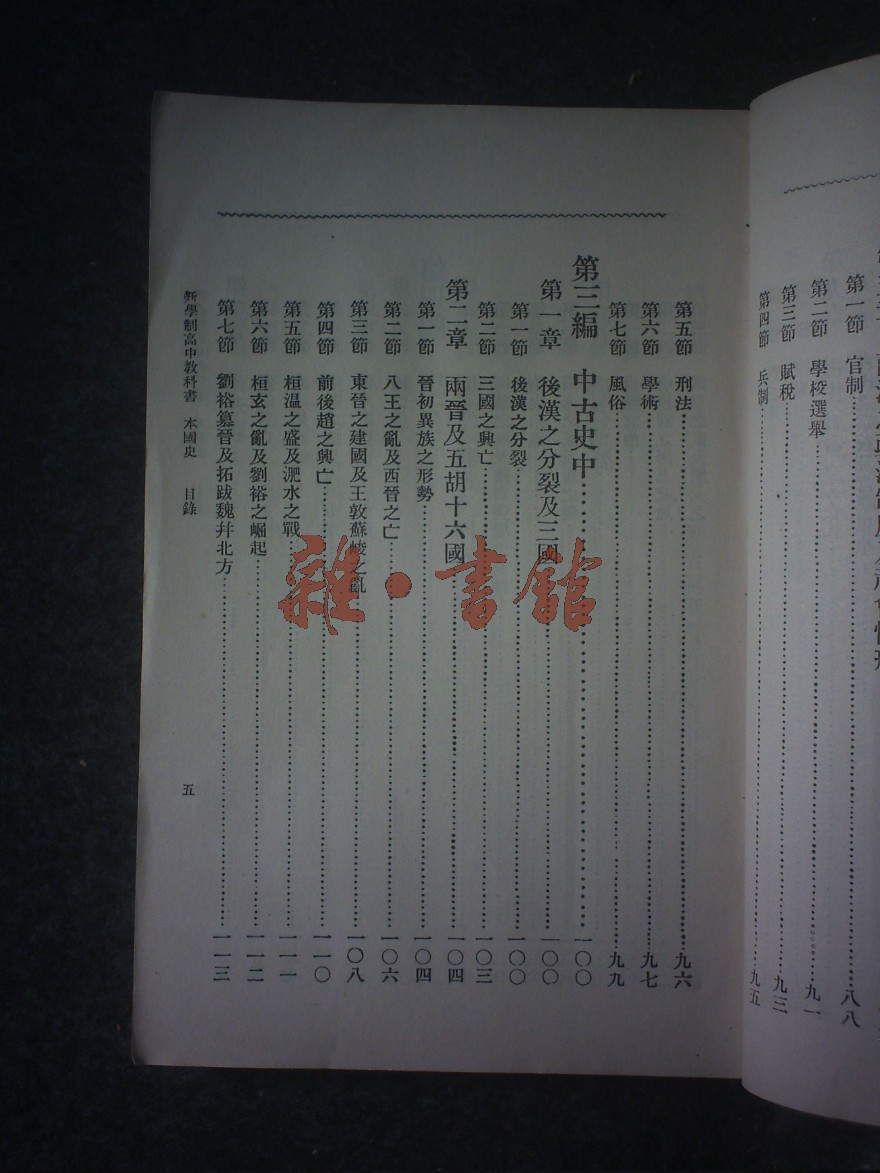 第一節 官制 八八
第二節 學校選舉 九一
第三節 賦稅 九三
第四節 兵制 九五
第五節 刑法 九六
第六節 學術 九七
第七節 風俗 九九
第三編 中古史中 一〇〇
第一章 後漢之分裂及三國 一〇〇
第一節 後漢之分裂 一〇〇
第二節 三國之興亡 一〇三
第二章 兩晉及五胡十六國 一〇四
第一節 晉初異族之形勢 一〇四
第二節 八王之亂及西晉之亡 一〇六
第三節 東晉之建國及王敦蘇峻之亂 一〇八
第四節 前後趙之興亡 一一〇
第五節 桓溫之盛及淝水之戰 一一一
第六節 桓玄之亂及劉裕之崛起 一一二
第七節 劉裕篡晉及拓跋魏幷北方 一一三
新學制高中教科書 本國史 目錄 五
雜·書館